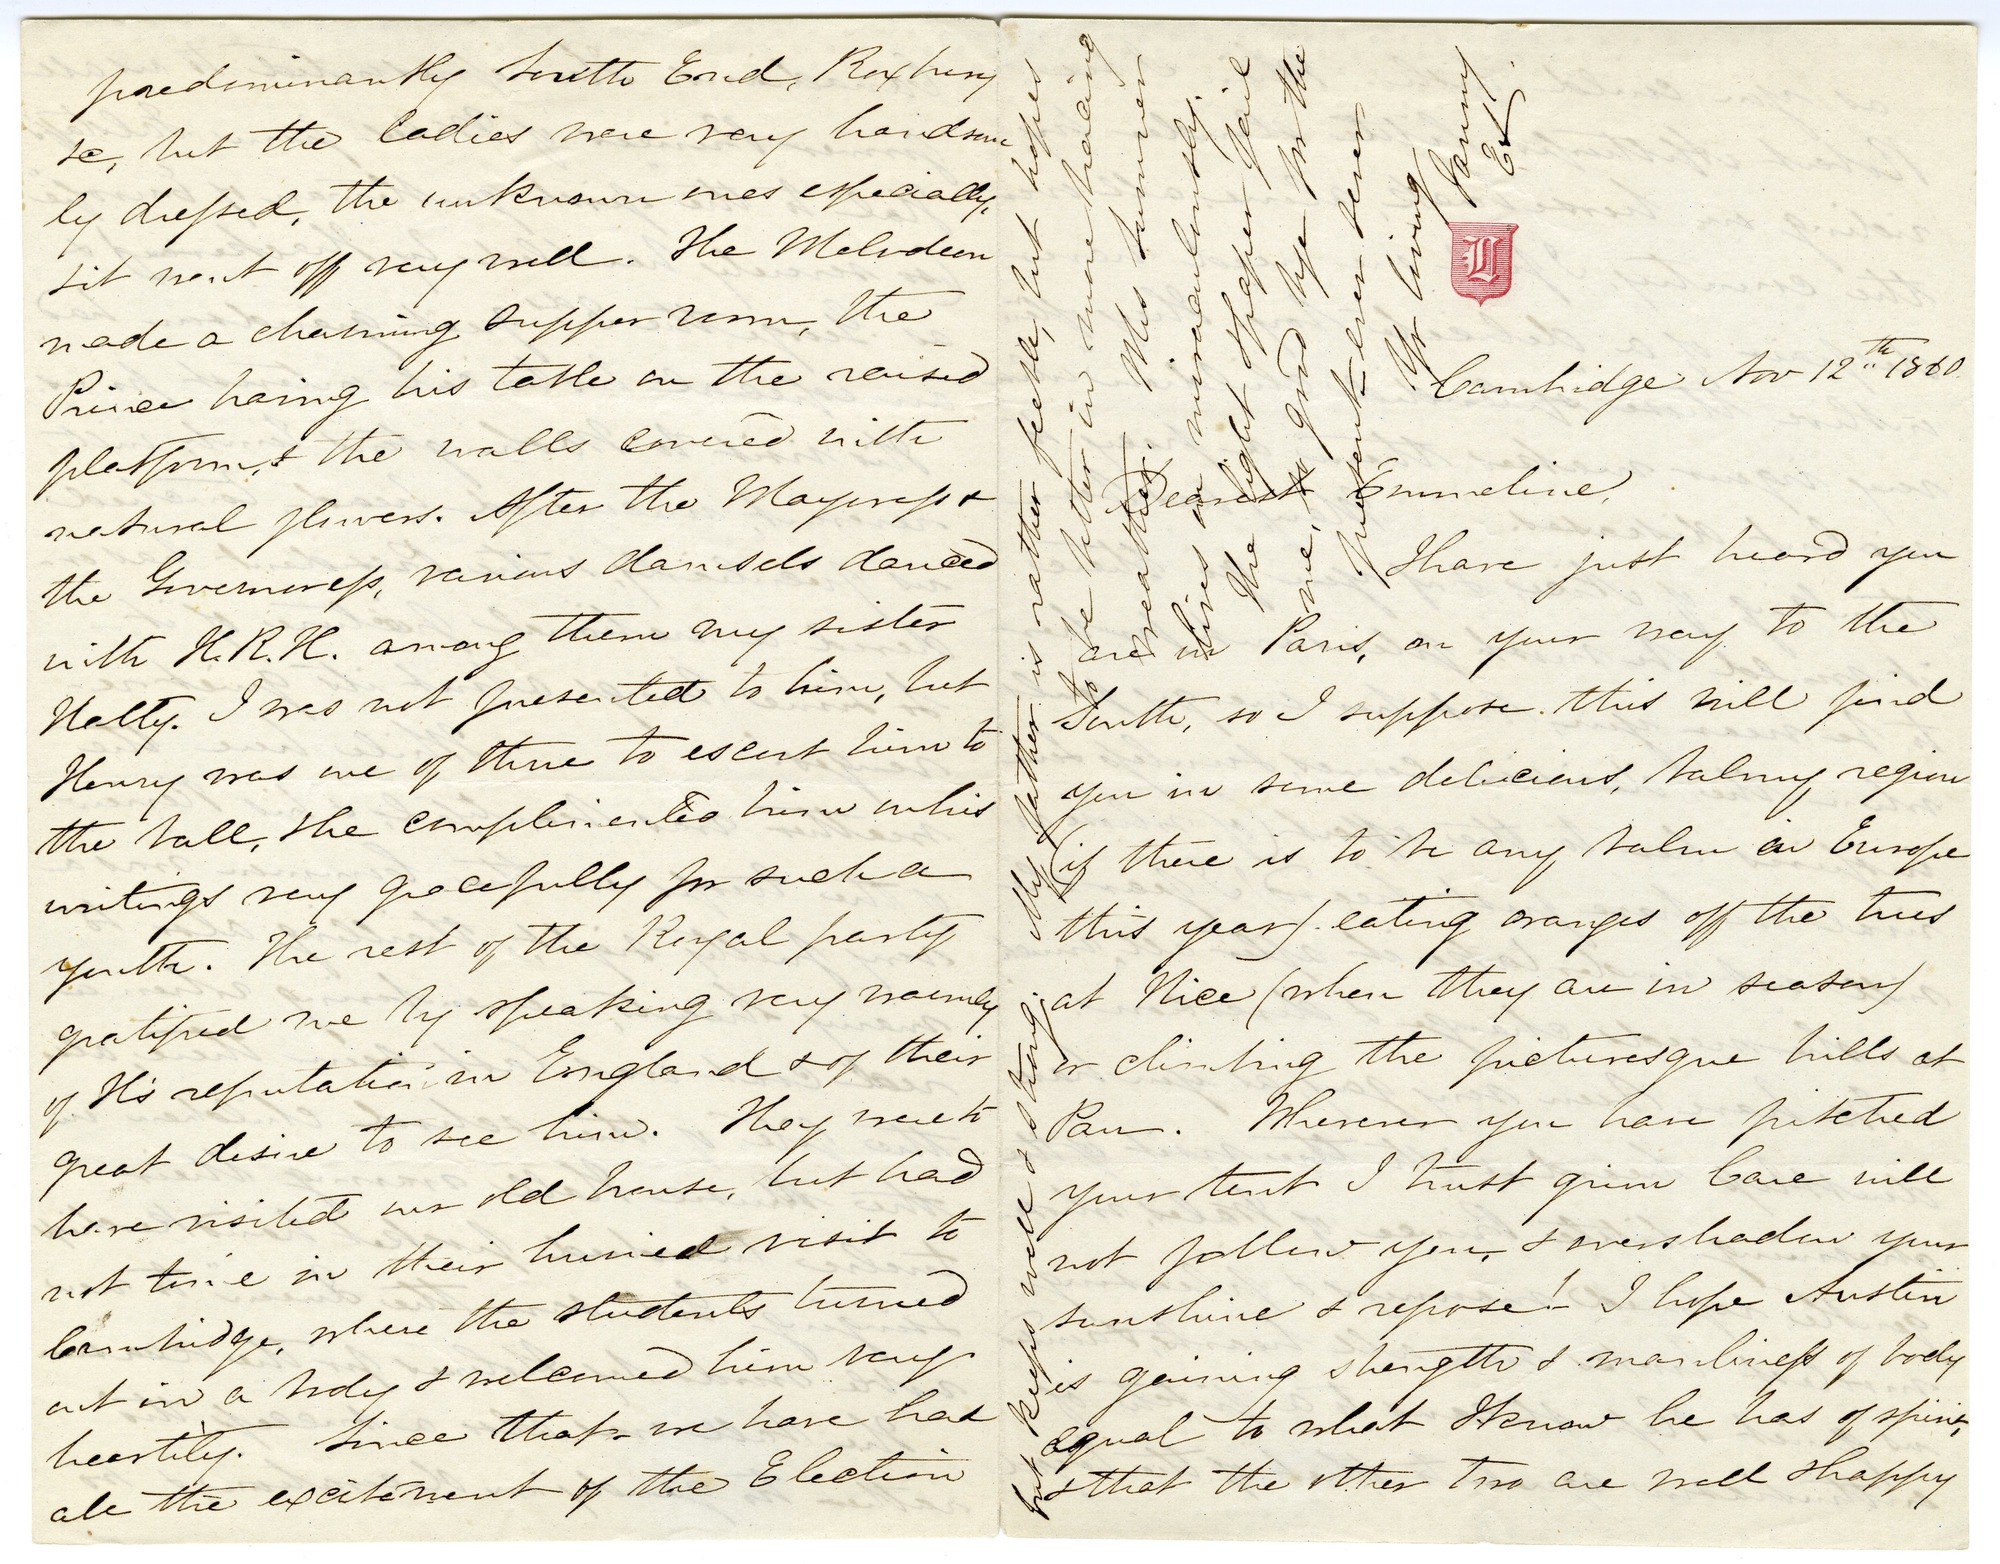 Cambridge Nov 12th 1860
Dearest Emmeline,
I have just heard you
are in Paris, on your way to the
South, so I suppose this will find
you in some delicious, balmy region
(if there is to be any balm in Europe
this year) eating oranges off the trees
at Nice (when they are in season)
or climbing the picturesque hills at
Pau. Wherever you have pitched
your tent I trust grim Care will
not follow you, & overshadow your
sunshine & repose! I hope Austin
is gaining strength & manliness of body
equal to what I know he has of spirit,
& that the other two are well & happy
predominantly South End, Roxbury
&c, but the ladies were very handsome
ly dressed, the unknown ones especially,
& it went off very well. The Melodeon
made a charming supper room, the
Prince having his table on the raised
platform, & the walls covered with
natural flowers. After the Mayoress &
the Governoress, various damsels danced
with H.R.H. among them my sister
Hatty. I was not presented to him, but
Henry was one of three to escort him to
the ball, & he complimented him on his
writings very gracefully for such a
youth. The rest of the Royal party
gratified me by speaking very warmly
of H's reputation in England & of their
great desire to see him. They were to
have visited our old house, but had
not time in their hurried visit to
Cambridge, where the students turned
out in a body & welcomed him very
heartily. Since that we have had
all the excitement of the Election
but keeps well & strong. My father is rather feeble, but hopes
to be better in more bracing
weather. Mrs Sumner
lives on miraculously.
The light & paper fail
me, so good bye for the
present ever & ever
Yr loving Fanny
E L.
L